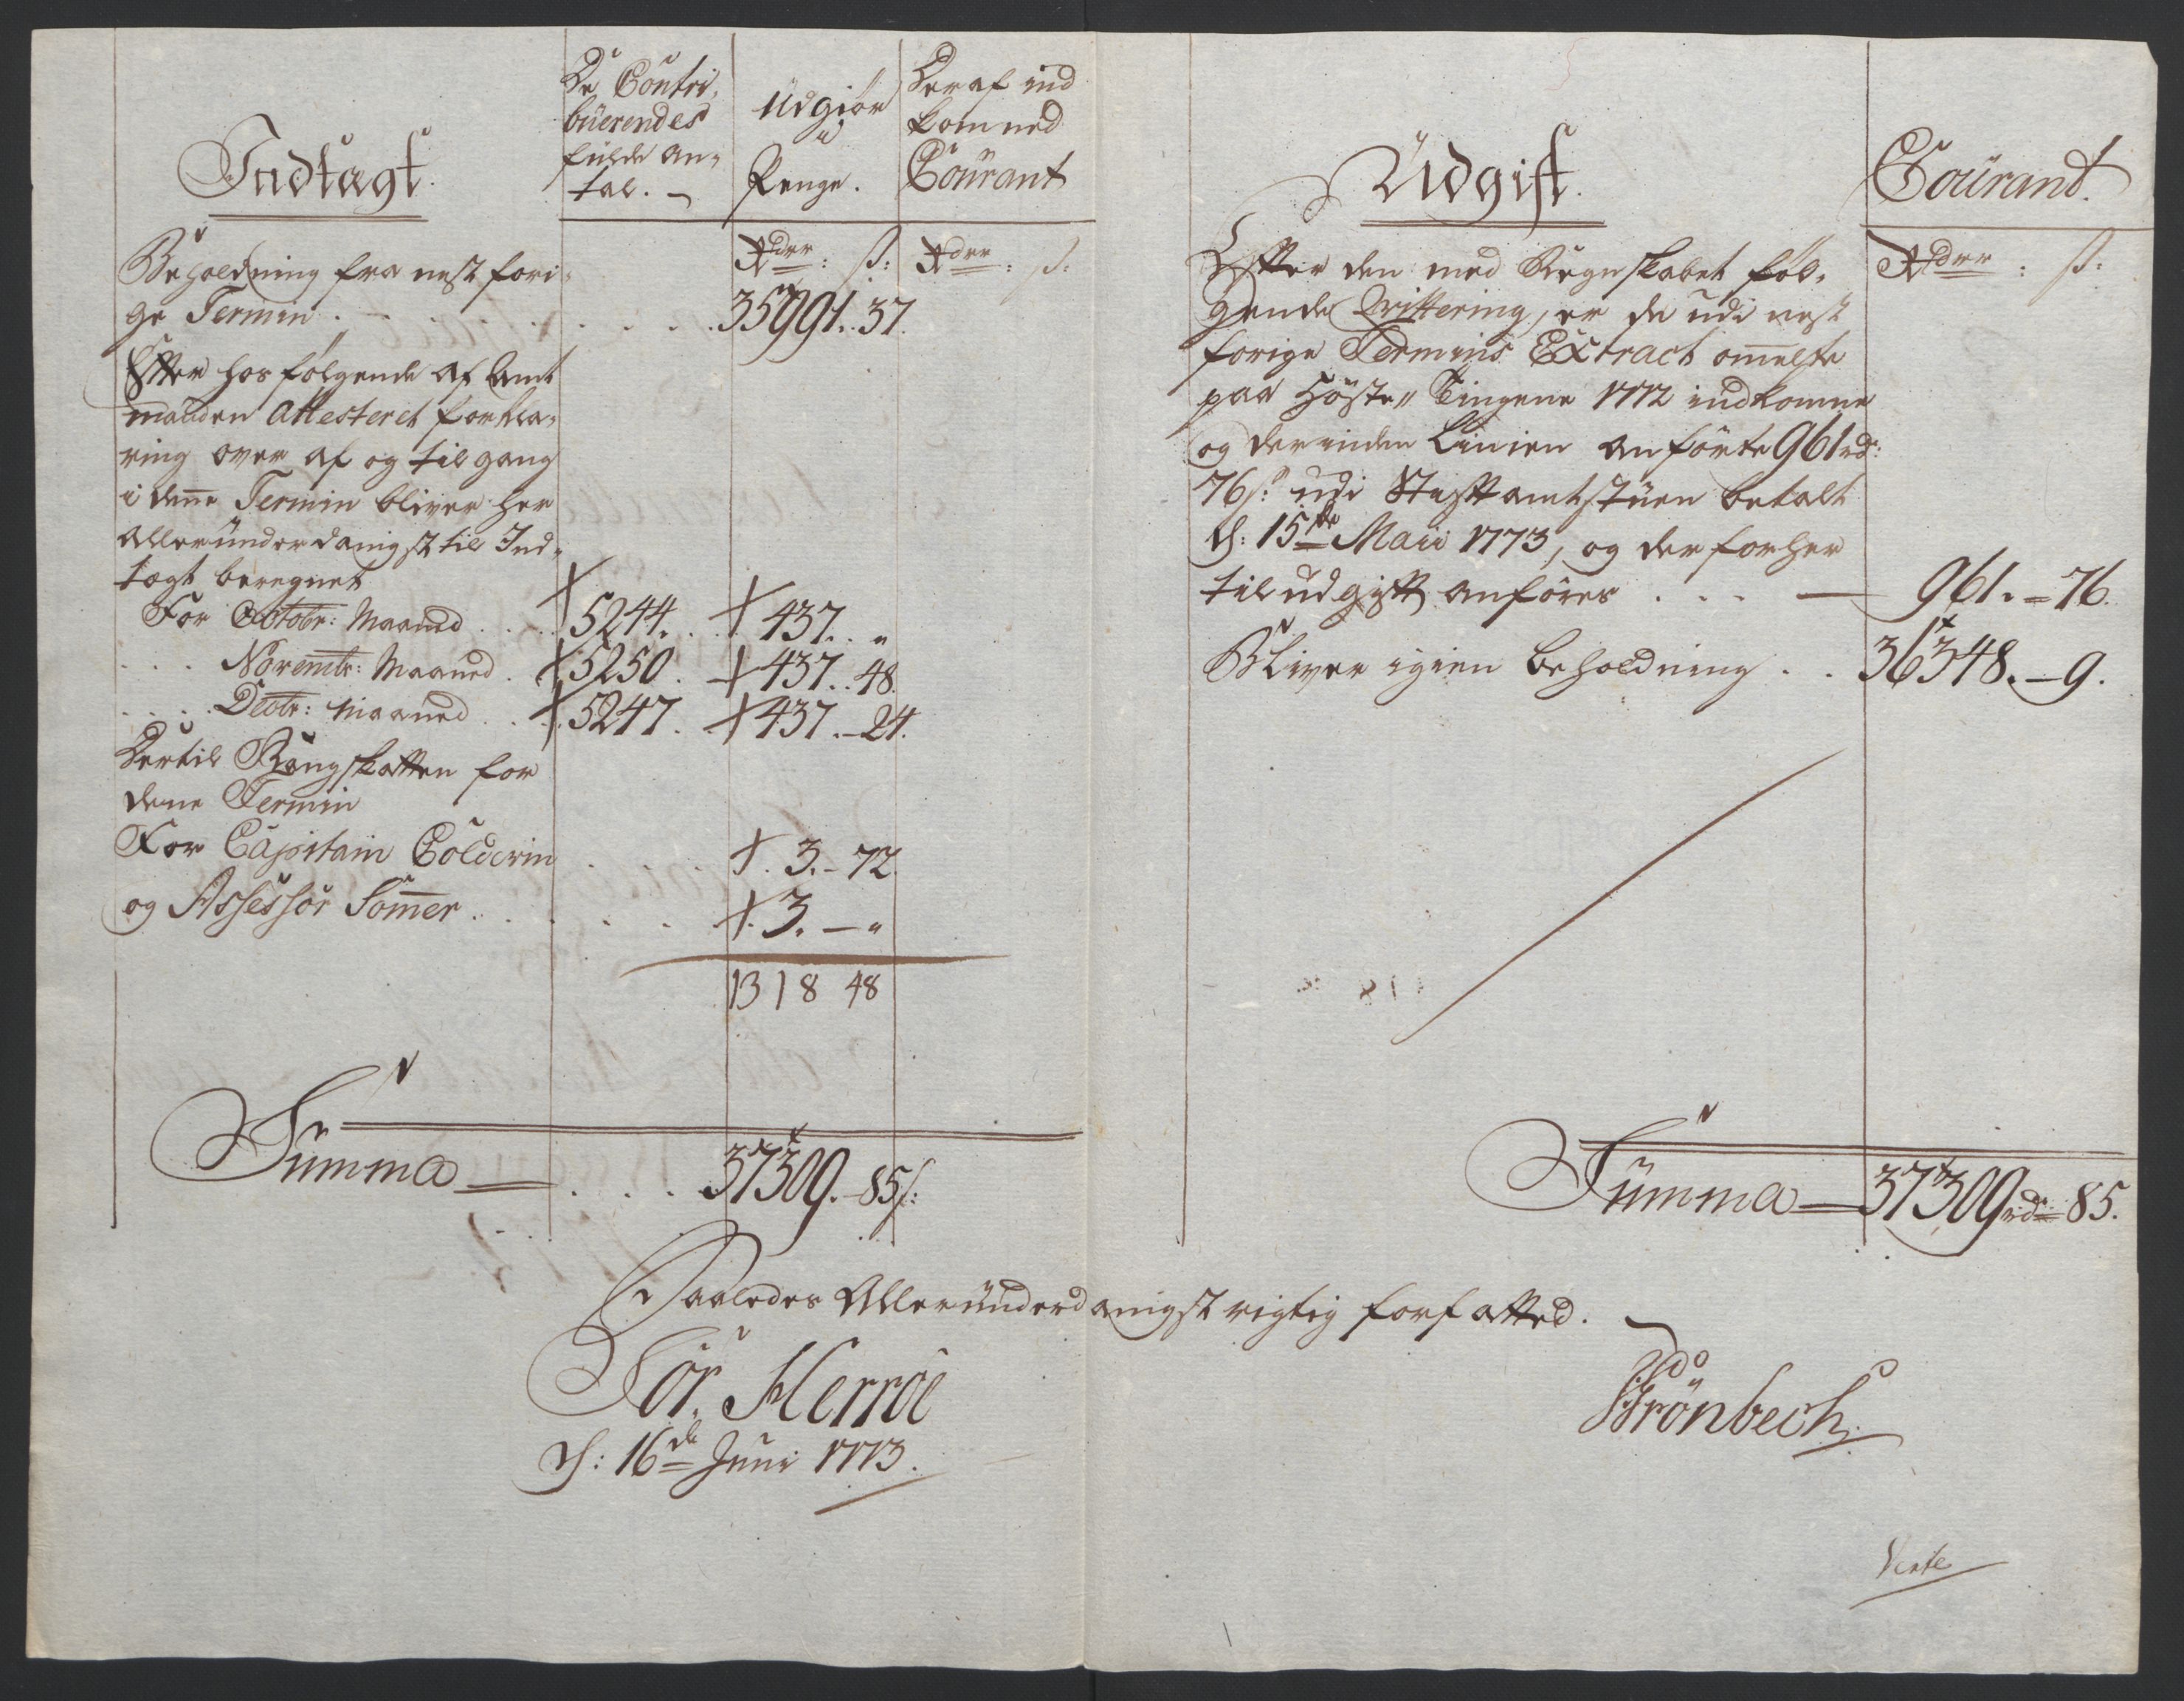 Indtægt.
De Contri,
buerendes
fulde an-
tal. -
Udgiör
i
Penge.
Deraf ind
kommed
Courant
Rdlr: ß: Rdlr: ß:
Beholdning fra nest fori-
ge Termin . . . . . . . 35991. 37.
Efter hosfølgende af Amt
manden Attesteret forkla-
ring over af og tilgang
i denne Termin bliver her
allerunderdanigst til Ind-
tægt beregnet
For Octobr: Maaned . . 5244. . 437. "
. . . Novembr: Maaned . 5250. 437. 48.
. . . Decbr: Maaned . . 5247. 437. - 24.
Dertil Rangskatten for
denne Termin
For Capitain Coldevin . . . 3. - 72.
og Assessor Sommer . . . . . 3. - "
1318 48
Summa . . . 37309. - 85 ß:
Udgift.
Courant.
Rdlr: ß:
Efter den med Regnskabet føl-
gende Qvittering, er de udi nest
forige Termins Extract ommelte
paa Höste„ Tingene 1772 indkomne
og der inden Linien anförte 961 rd:
76 ß: udi Stiftamtstuen betalt
d: 15de Maii 1773, og derfor her
til udgift anföres . . . — 961. - 76.
Bliver igien Beholdning . . 36348. - 9.
Summa 37309 rd: 85.
Saaledes Allerunderdanigst rigtig forfatted.
Sör. Herröe
d: 16de Juni 1773.
Brönbech.
Verte